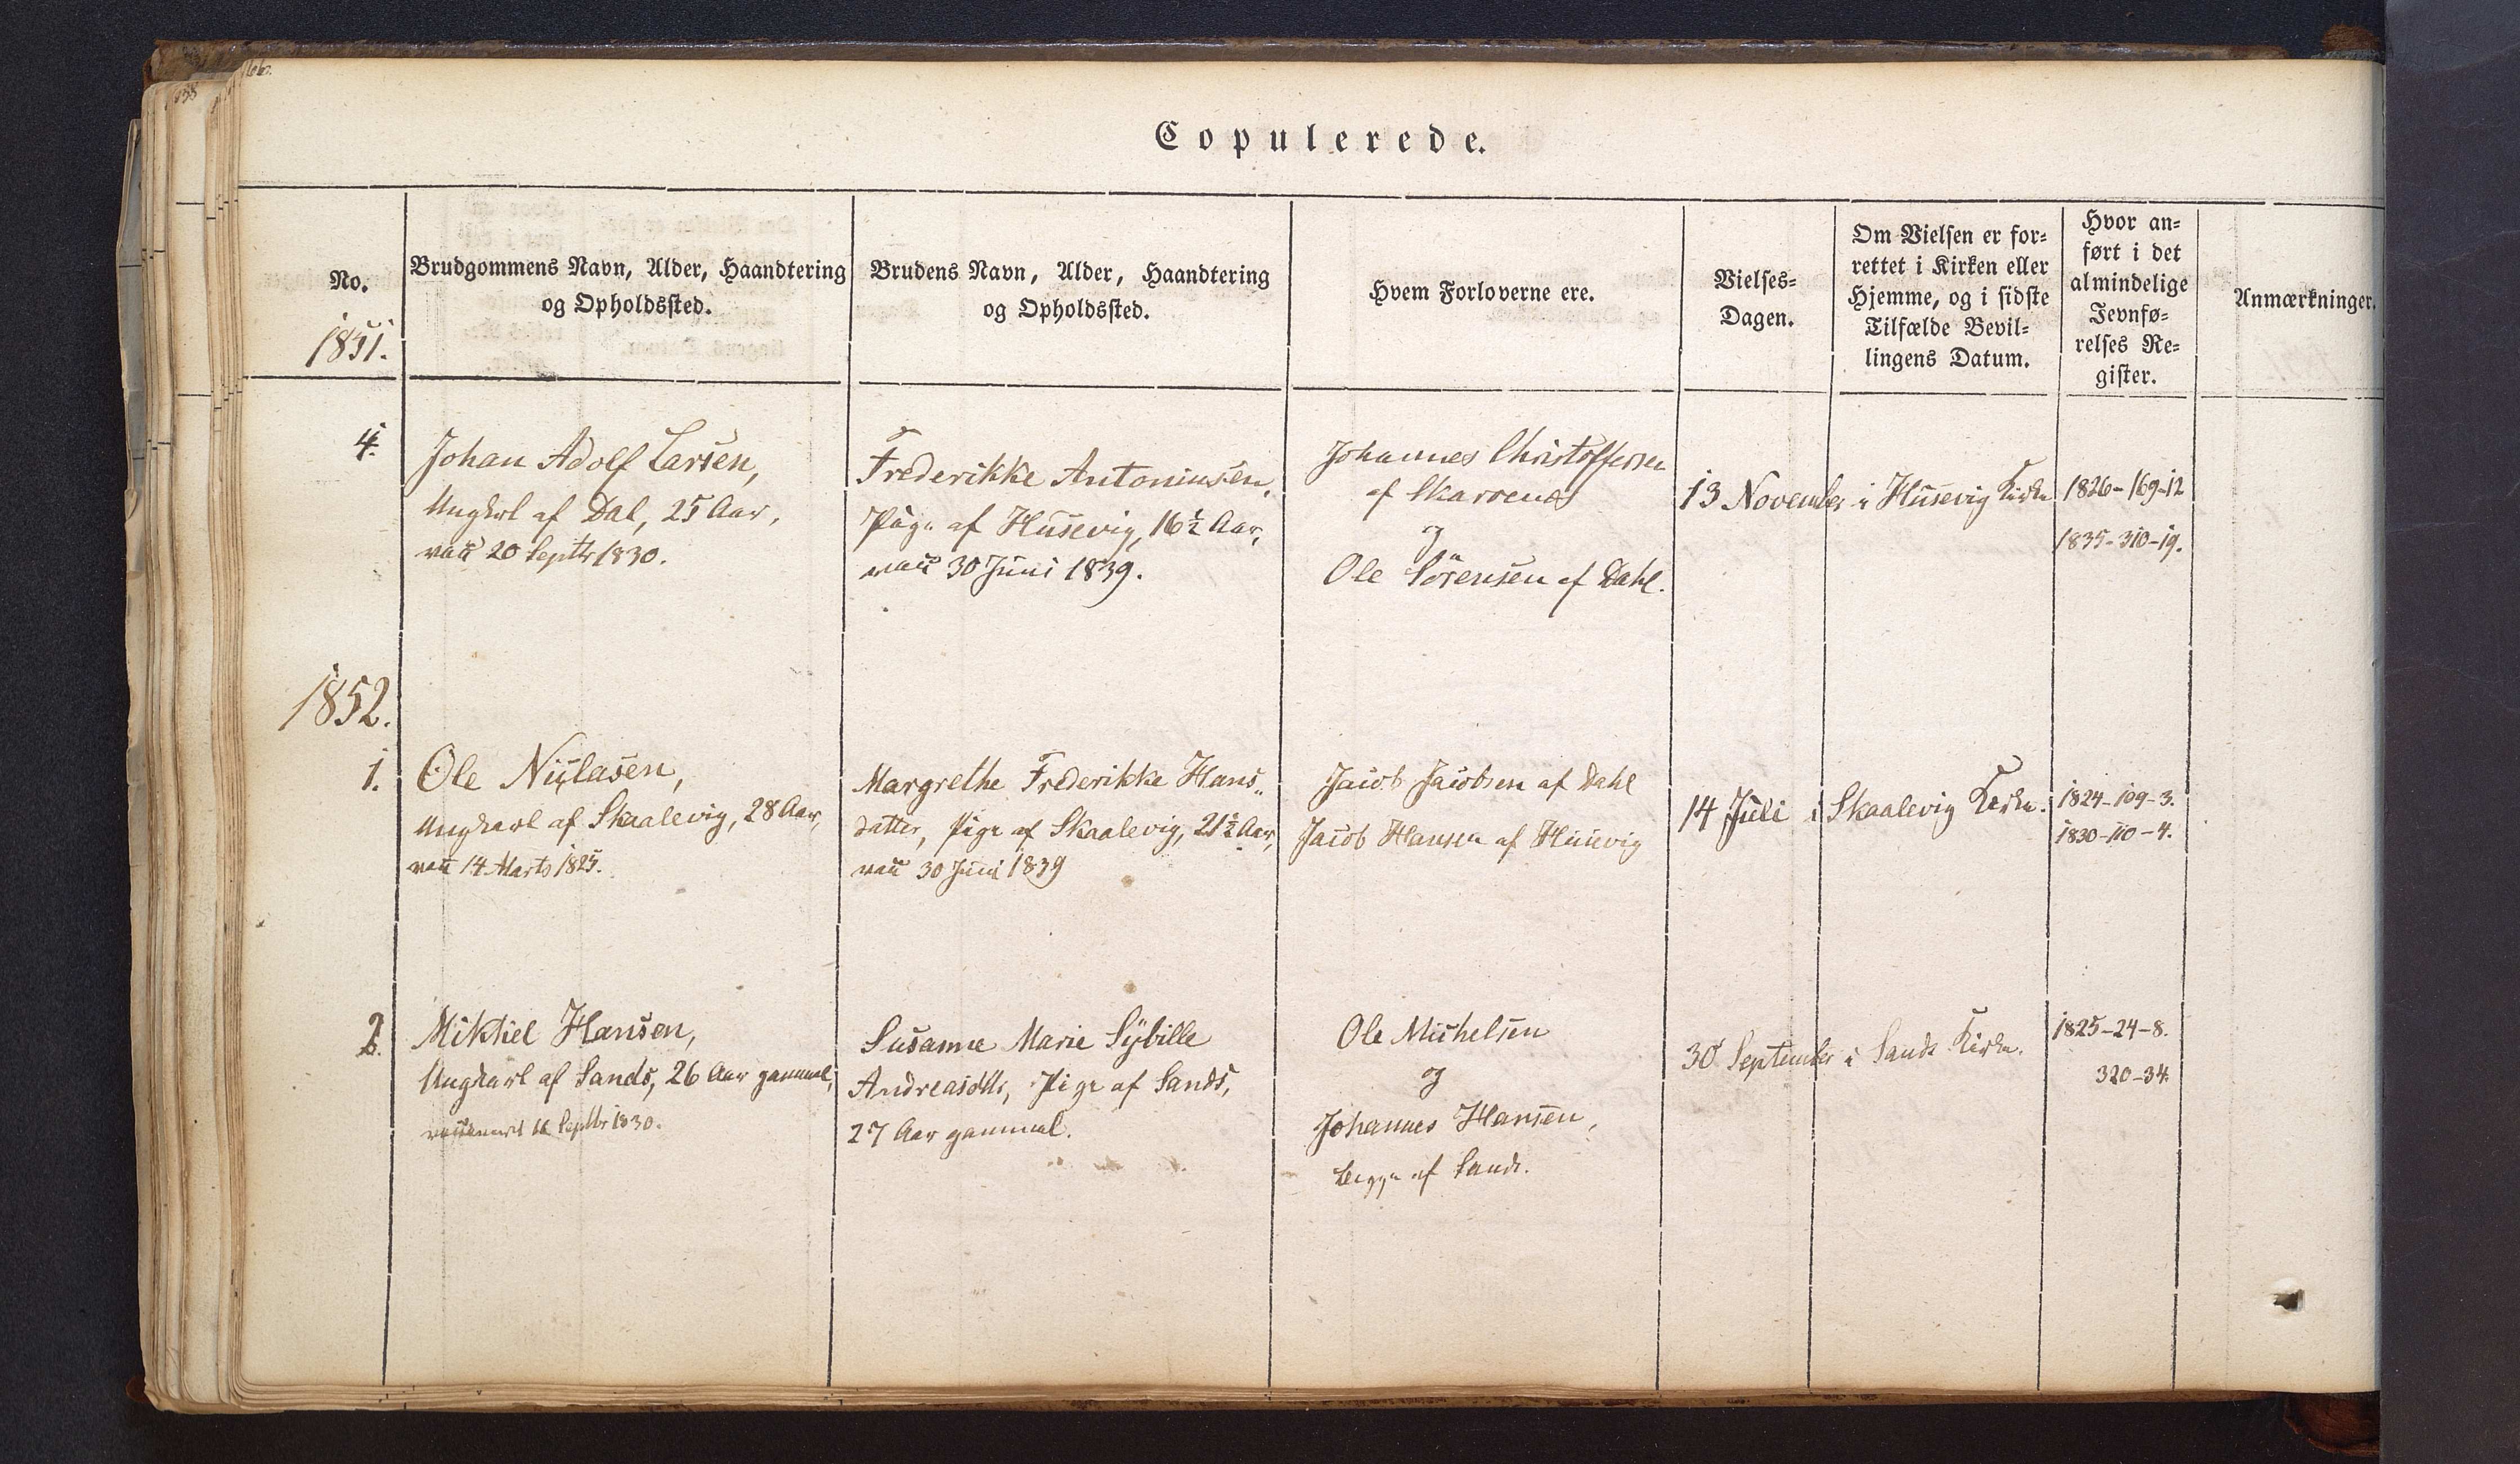 Copulerede.
No.
1851.
Brudgommens Navn, Alder, Haandtering
og Opholdssted.
Brudens Navn, Alder, Haandtering
og Opholdssted.
Hvem Forloverne ere.
Vielses-
Dagen.
Om Vielsen er for-
rettet i Kirken eller
Hjemme, og i sidste
Tilfælde Bevil-
lingens Datum.
Hvor an-
ført i det
almindelige
Jevnfø-
relses Re-
gister.
Anmærkninger.
4.
Johan Adolf Larsen,
Ungkrl af Dal, 25 Aar,
vacc 20 Septbr 1830.
Frederikke Antoniusen,
Pige af Husevig, 16½ Aar,
vacc 30 Juni 1839.
Johannes Christoffersen
af Skarvenæs
og
Ole Sörensen af Dahl.
13 November
i Husevig Kirke
1826-169-12
1835-310-19.
1852.
1.
Ole Niclasen,
Ungkarl af Skaalevig, 28 Aar,
vacc 14 Marts 1825.
Margrethe Frederikke Hans-
datter, Pige af Skaalevig, 21½ Aar,
vacc 30 Juni 1839
Jacob Jacobsen af Dahl
Jacob Hansen af Husevig
14 Juli
i Skaalevig Kirke.
1824-109-3.
1830-110-4.
2.
Mikkel Hansen,
Ungkarl af Sands, 26 Aar gammel,
vaccineret 16 Septbr 1830.
Susanne Marie Sybille
Andreasdttr, Pige af Sands,
27 Aar gammel.
Ole Michelsen
og
Johannes Hansen,
begge af Sands.
30 September
i Sands Kirke.
1825-24-8.
320-34.